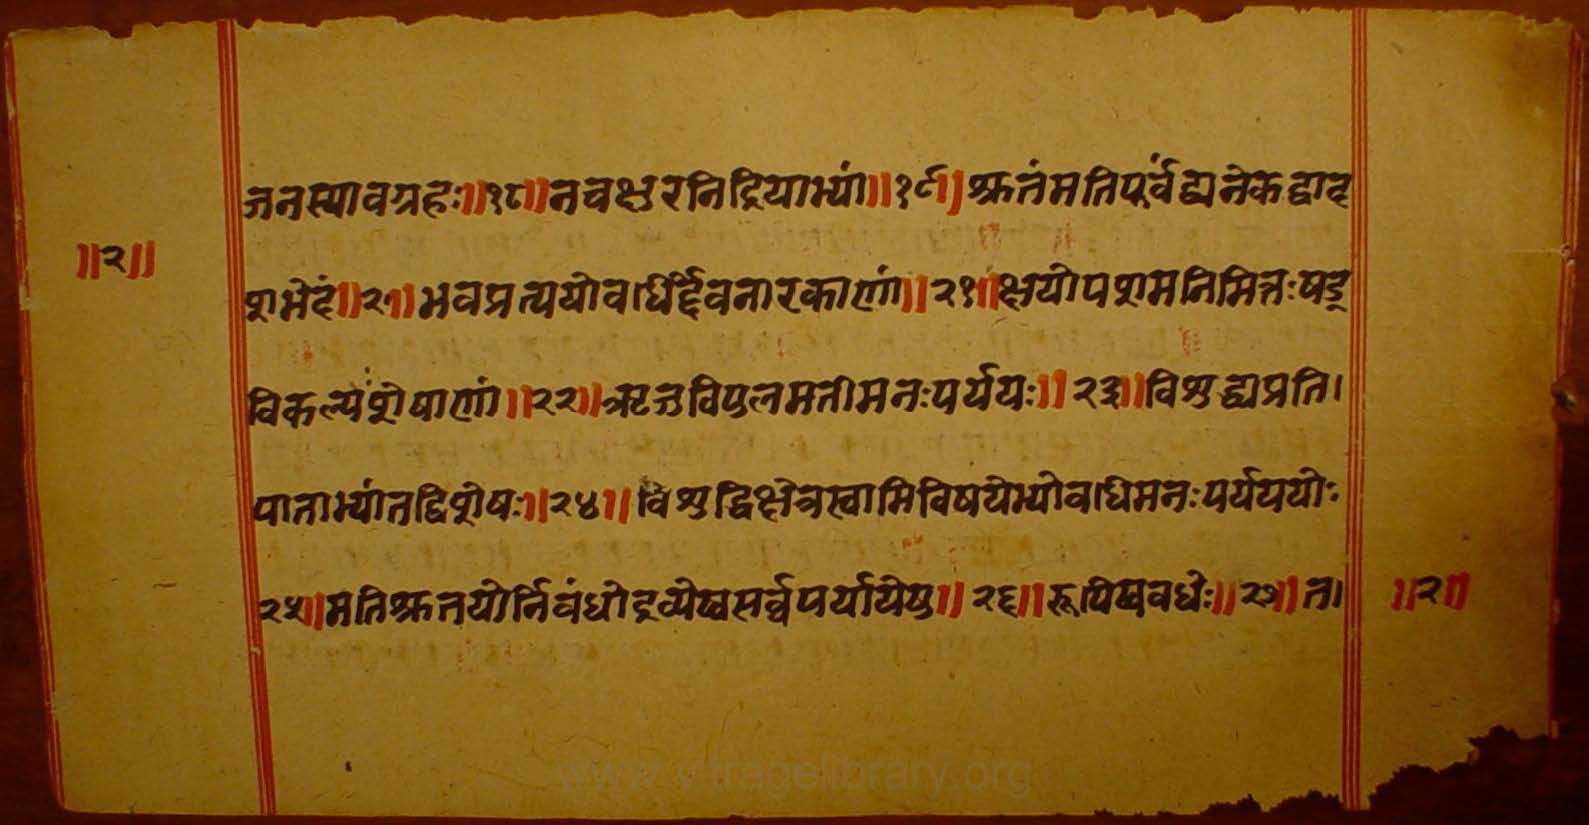 जनस्यावग्रहः॥१८॥नचक्षुरनिंद्रियाभ्यां॥१९॥श्रुतंमतिपूर्वंद्व्यनेकद्वाद
॥२॥
शभेदं॥२०॥भवप्रत्ययोवधिर्द्देवनारकाणां॥२१॥क्षयोपशमनिमित्तःषड्
विकल्पःशेषाणां॥२२॥ऋजुविपुलमतीमनःपर्ययः॥२३॥विशुद्ध्यप्रति।
पाताभ्यांतद्विशेषः॥२४॥विशुद्धिक्षेत्रस्वामिविषयेभ्योवधिमनःपर्यययोः
२५॥मतिश्रुतयोर्निबंधोद्रव्येष्वसर्व्वपर्यायेषु॥२६॥रूपिष्ववधेः॥२७॥त।
॥२॥
www.vitragelibrary.org